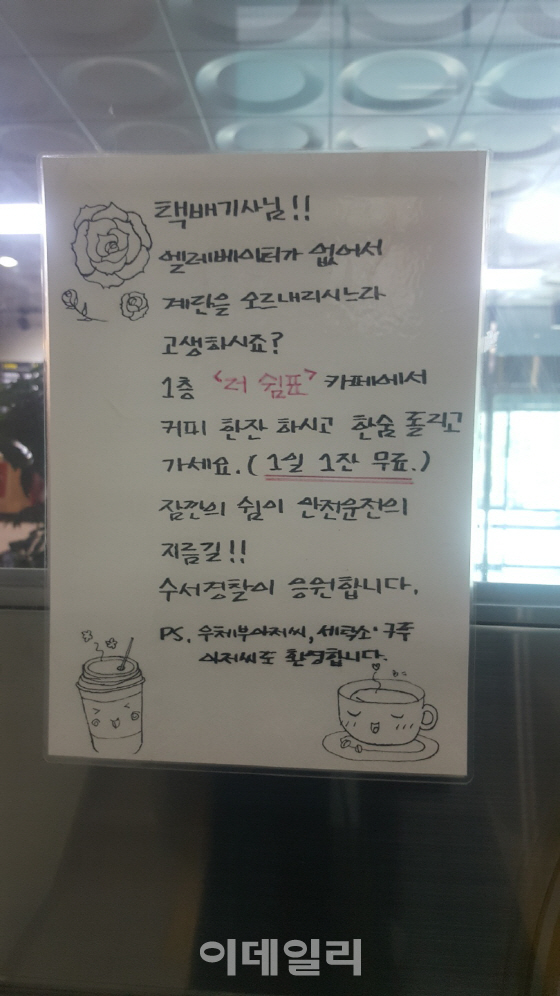 택배기사님!!
엘레베이터가 없어서
계단을 오르내리시느라
고생하시죠?
1층 '더 쉼표' 카페에서
커피 한잔 하시고 한숨 돌리고
가세요. (1일 1잔 무료.)
잠깐의 쉼이 안전운전의
지름길!!
수서경찰이 응원합니다.
PS. 우체부아저씨, 세탁소·구두
아저씨도 환영합니다.
이데일리